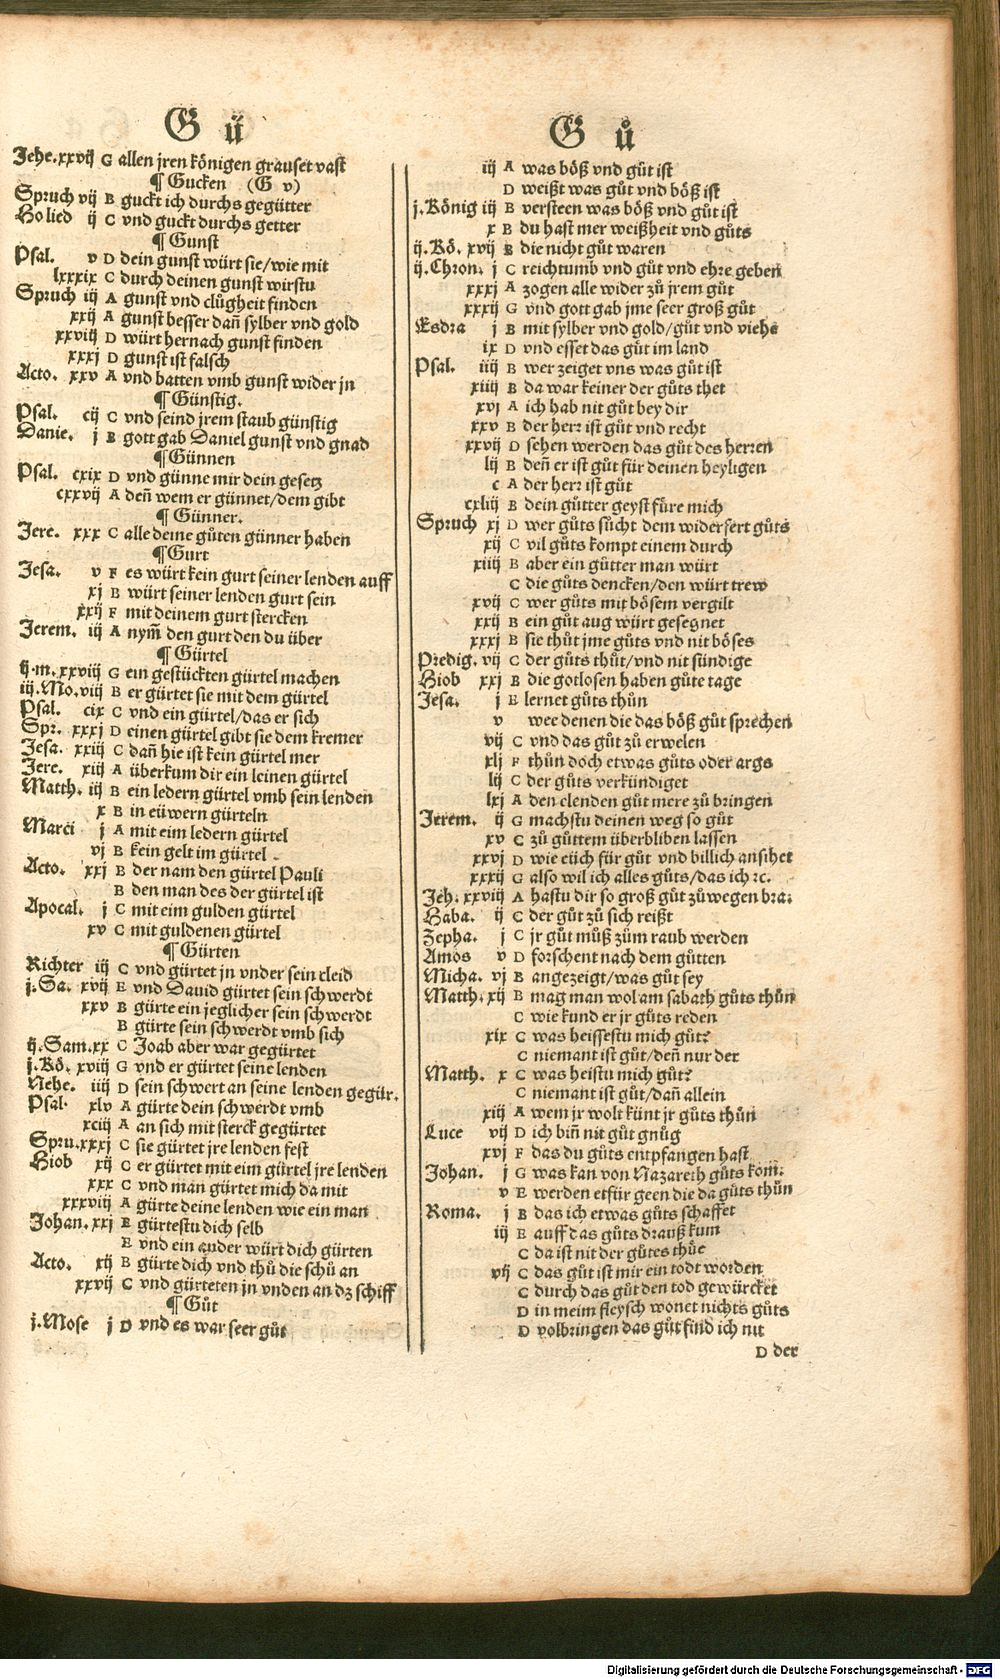 G ü
Jehe. xxvij G allen jren königen grauset vast
¶ Gucken (G v)
Spruch vij B guckt ich durchs gegütter
Holied ij C vnd guckt durchs getter
¶ Gunst
Psal. v D dein gunst würt sie/wie mit
lxxxix C durch deinen gunst wirstu
Spruch iij A gunst vnd clůgheit finden
xxij A gunst besser dañ sylber vnd gold
xxviij D würt hernach gunst finden
xxxj D gunst ist falsch
Acto. xxv A vnd batten vmb gunst wider jn
¶ Günstig.
Psal. cij C vnd seind jrem staub günstig
Danie. j B gott gab Daniel gunst vnd gnad
¶ Günnen
Psal. cxix D vnd günne mir dein gesetz
cxxvij A deñ wem er günnet/dem gibt
¶ Günner.
Jere. xxx C alle deine gůten günner haben
¶ Gurt
Jesa. v F es würt kein gurt seiner lenden auff
xj B würt seiner lenden gurt sein
xxij F mit deinem gurt stercken
Jerem. iij A nym̃ den gurt den du über
¶ Gürtel
ij.m. xxviij G ein gestückten gürtel machen
iij.Mo. viij B er gürtet sie mit dem gürtel
Psal. cix C vnd ein gürtel/das er sich
Spr. xxxj D einen gürtel gibt sie dem kremer
Jesa. xxiij C dañ hie ist kein gürtel mer
Jere. xiij A überkum dir ein leinen gürtel
Matth. iij B ein ledern gürtel vmb sein lenden
x B in eüwern gürteln
Marci j A mit eim ledern gürtel
vj B kein gelt im gürtel
Acto. xxj B der nam den gürtel Pauli
B den man des der gürtel ist
Apocal. j C mit eim gulden gürtel
xv C mit guldenen gürtel
¶ Gürten
Richter iij C vnd gürtet jn vnder sein cleid
j.Sa. xvij E vnd Dauid gürtet sein schwerdt
xxv B gürte ein jeglicher sein schwerdt
B gürte sein schwerdt vmb sich
ij.Sam. xx C Joab aber war gegürtet
j.Kö. xviij G vnd er gürtet seine lenden
Nehe. iiij D sein schwert an seine lenden gegür.
Psal. xlv A gürte dein schwerdt vmb
xciij A an sich mit sterck gegürtet
Spru. xxxj C sie gürtet jre lenden fest
Hiob xij C er gürtet mit eim gürtel jre lenden
xxx C vnd man gürtet mich da mit
xxxviij A gürte deine lenden wie ein man
Johan. xxj E gürtestu dich selb
E vnd ein ander würt dich gürten
Acto. xij B gürte dich vnd thů die schů an
xxvij C vnd gürteten jn vnden an dz schiff
¶ Gůt
j.Mose j D vnd es war seer gůt
G ů
iij A was böß vnd gůt ist
D weißt was gůt vnd böß ist
j.König iij B versteen was böß vnd gůt ist
x B du hast mer weißheit vnd gůts
ij.Kö. xvij B die nicht gůt waren
ij.Chron. j C reichtumb vnd gůt vnd ehre geben
xxxj A zogen alle wider zů jrem gůt
xxxij G vnd gott gab jme seer groß gůt
Esdra j B mit sylber vnd gold/gůt vnd viehe
ix D vnd esset das gůt im land
Psal. iiij B wer zeiget vns was gůt ist
xiiij B da war keiner der gůts thet
xvj A ich hab nit gůt bey dir
xxv B der herr ist gůt vnd recht
xxvij D sehen werden das gůt des herren
lij B deñ er ist gůt für deinen heyligen
c A der herr ist gůt
cxliij B dein gůtter geyst füre mich
Spruch xj D wer gůts sůcht dem widerfert gůts
xij C vil gůts kompt einem durch
xiiij B aber ein gůtter man würt
C die gůts dencken/den würt trew
xvij C wer gůts mit bösem vergilt
xxij B ein gůt aug würt gesegnet
xxxj B sie thůt jme gůts vnd nit böses
Predig. vij C der gůts thůt/vnd nit sündige
Hiob xxj B die gotlosen haben gůte tage
Jesa. j E lernet gůts thůn
v wee denen die das böß gůt sprechen
vij C vnd das gůt zů erwelen
xlj F thůn doch etwas gůts oder args
lij C der gůts verkündiget
lxj A den elenden gůt mere zů bringen
Jerem. ij G machstu deinen weg so gůt
xv C zů gůttem überbliben lassen
xxvj D wie eüch für gůt vnd billich ansihet
xxxij G also wil ich alles gůts/das ich ꝛc.
Jeh. xxviij A hastu dir so groß gůt zůwegen bra.
Haba. ij C der gůt zů sich reißt
Zepha. j C jr gůt můß zům raub werden
Amos v D forschent nach dem gůtten
Micha. vj B angezeigt/was gůt sey
Matth. xij B mag man wol am sabath gůts thůn
C wie kund er jr gůts reden
xix C was heissestu mich gůt?
C niemant ist gůt/deñ nur der
Matth. x C was heistu mich gůt?
C niemant ist gůt/dañ allein
xiij A wem jr wolt künt jr gůts thůn
Luce vij D ich biñ nit gůt gnůg
xvj F das du gůts entpfangen hast
Johan. j G was kan von Nazareth gůts kom̃.
v E werden etfür geen die da gůts thůn
Roma. j B das ich etwas gůts schaffet
iij E auff das gůts drauß kum
C da ist nit der gůtes thůe
vij C das gůt ist mir ein todt worden
C durch das gůt den tod gewürcket
D in meim fleysch wonet nichts gůts
D volbringen das gůt find ich nit
D der
Digitalisierung gefördert durch die Deutsche Forschungsgemeinschaft - DFG